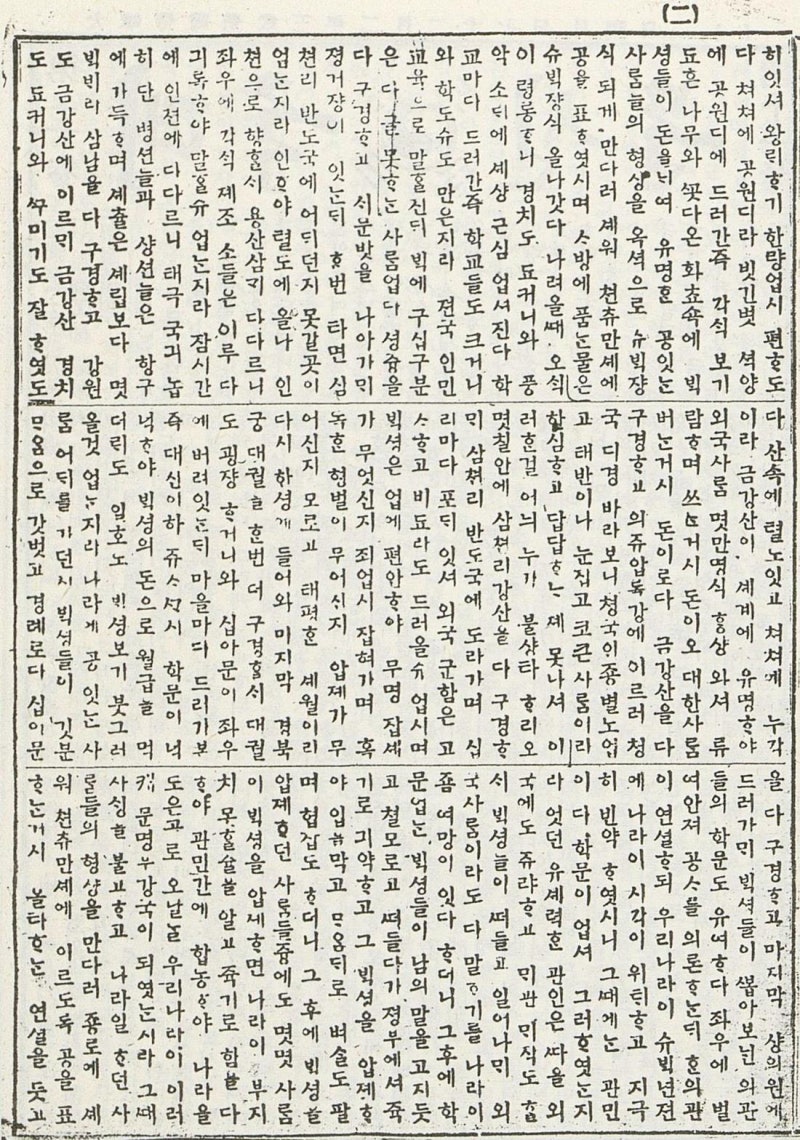 히잇셔 왕릭ᄒᆞ기 한량업시 편ᄒᆞ도
다 쳐쳐에 곳원디라 빗긴볏 셕양
에 곳원디에 드러간즉 각식 보기
됴흔 나무와 ᄭᅩᆺ다온 화효쇽에 ᄇᆡᆨ
셩들이 돈을ᄂᆡ여 유명ᄒᆞᆫ 공잇ᄂᆞᆫ
사ᄅᆞᆷ들의 형샹을 옥셕으로 슈ᄇᆡᆨ쟝
식 되게 만다러 셰워 쳔츄만셰에
공을 표ᄒᆞ엿시며 ᄉᆞ방에 품ᄂᆞᆫ물은
슈ᄇᆡᆨ쟝식 올나갓다 나려올ᄯᅢ 오ᄉᆡᆨ
이 령롱ᄒᆞ니 경치도 됴커니와 풍
악 소ᄅᆡ에 셰샹 근심 업셔진다 학
교마다 드러간즉 학교들도 크거니
와 학도슈도 만은지라 젼국 인민
교육으로 말ᄒᆞᆯ진ᄃᆡ ᄇᆡᆨ에 구십구분
은 다 글 못ᄒᆞᄂᆞᆫ 사ᄅᆞᆷ업다 셩즁을
다 구경ᄒᆞ고 셔문밧을 나아가ᄆᆡ
졍거쟝이 잇ᄂᆞᆫᄃᆡ ᄒᆞᆫ번 타면 심
쳔리 반도국에 어ᄃᆡ던지 못갈곳이
업ᄂᆞᆫ지라 인ᄒᆞ야 텰도에 올나 인
쳔으로 향ᄒᆞᆯᄉᆡ 용산삼ᄀᆡ 다다르니
좌우에 각ᄉᆡᆨ 졔조 소들은 이루 다
긔록ᄒᆞ야 말ᄒᆞᆯ슈 업ᄂᆞᆫ지라 잠시간
에 인쳔에 다다르니 태극 국긔 놉
히 단 병션들과 샹션들은 항구
에 가득ᄒᆞ며 셰츌은 셰립보다 몃
ᄇᆡᆨᄇᆡ라 삼남을 다 구경ᄒᆞ고 강원
도 금강산에 이르ᄆᆡ 금강산 경치
도 됴커니와 ᄭᅮ미기도 잘 ᄒᆞ엿도
다 산속에 텰노잇고 쳐쳐에 누각
이라 금강산이 셰계에 유명ᄒᆞ야
외국사ᄅᆞᆷ 몃만명식 ᄒᆞᆼ샹 와셔 류
람ᄒᆞ며 쓰ᄂᆞᆫ거시 돈이오 대한사ᄅᆞᆷ
버ᄂᆞᆫ거시 돈이로다 금강산을 다
구경ᄒᆞ고 의쥬압록강에 이르러 쳥
국 디경 바라보니 쳥국인죵 별노업
고 태반이나 눈집고 코큰 사ᄅᆞᆷ이라
한심ᄒᆞ고 답답ᄒᆞᄂᆞᆫ 셰 못나셔 이
러ᄒᆞᆫ걸 어늬 누가 불샹타 ᄒᆞ리오
몃칠안에 삼쳔리강산을 다 구경ᄒᆞ
ᄆᆡ 삼쳔리 반도국에 도라가며 십
리마다 포ᄃᆡ 잇셔 외국 군함은 고
ᄉᆞᄒᆞ고 비됴라도 드러올슈 업시며
ᄇᆡᆨ셩은 업에 편안ᄒᆞ야 무명 잡셰
가 무엇신지 죄업시 잡혀가며 혹
독ᄒᆞᆫ 형벌이 무어신지 압졔가 무
어신지 모로고 태평ᄒᆞᆫ 셰월이리
다시 한셩에 들어와 마지막 경북
궁 대궐을 ᄒᆞᆫ번 더 구경ᄒᆞᆯᄉᆡ 대궐
도 굉쟝 ᄒᆞ거니와 십아문이 좌우
에 버려잇ᄂᆞᆫᄃᆡ 마을마다 드러가보
즉 대신이하 쥬ᄉᆞᄭᆞ지 학문이 넉
넉ᄒᆞ야 ᄇᆡᆨ셩의 돈으로 월급을 먹
더ᄅᆡ도 일호도 ᄇᆡᆨ셩보기 붓그러
올것 업ᄂᆞᆫ지라 나라에 공 잇ᄂᆞᆫ 사
ᄅᆞᆷ 어ᄃᆡ를 가던지 ᄇᆡᆨ셩들이 깃분
ᄆᆞᄋᆞᆷ으로 갓벗고 경례로다 십이문
을 다 구경ᄒᆞ고 마지막 샹의원에
드러가ᄆᆡ ᄇᆡᆨ셩들이 ᄲᅩᆸ아보넌 의관
들의 학문도 유여ᄒᆞ다 좌우에 벌
여안져 공ᄉᆞ를 의론ᄒᆞᄂᆞᆫᄃᆡ ᄒᆞᆫ의관
이 연셜ᄒᆞ되 우리나라이 슈ᄇᆡᆨ년젼
에 나라이 시각이 위ᄐᆡᄒᆞ고 지극
히 빈약 ᄒᆞ엿시니 그ᄯᅢ에ᄂᆞᆫ 관민
이 다 학문이 업셔 그러ᄒᆞ엿ᄂᆞᆫ지
라 엇던 유셰력ᄒᆞᆫ 관인은 ᄯᅡ을 외
국에도 쥬랴ᄒᆞ고 ᄆᆡ관 ᄆᆡ직도 ᄒᆞᆷ
ᄋᆡ ᄇᆡᆨ셩들이 ᄯᅥ들고 일어나ᄆᆡ 외
국사ᄅᆞᆷ이라도 다 말ᄒᆞ기를 나라이
죰 여망이 잇다 ᄒᆞ더니 그후에 학
문업ᄂᆞᆫ ᄇᆡᆨ셩들이 남의 말을 고지듯
고 쳘모로고 ᄯᅥ들다가 졍부에셔 쥭
기로 긔약ᄒᆞ고 그 ᄇᆡᆨ셩을 압졔ᄒᆞ
야 입을막고 ᄆᆞᄋᆞᆷᄃᆡ로 벼슬도 팔
며 협잡도 ᄒᆞ더니 그 후에 ᄇᆡᆨ셩을
압졔ᄒᆞ던 사ᄅᆞᆷ들즁에도 몃몃 사ᄅᆞᆷ
이 ᄇᆡᆨ셩을 압졔ᄒᆞ면 나라이 부지
치 못ᄒᆞᆯ쥴을 알고 쥭기로 힘을 다
ᄒᆞ야 관민간에 합동ᄒᆞ야 나라을
도은고로 오날ᄂᆞᆯ 우리나라이 이러
케 문명부강국이 되엿ᄂᆞᆫ지라 그ᄯᅢ
사싱을 불고ᄒᆞ고 나라일 ᄒᆞ던 사
ᄅᆞᆷ들의 형샹을 만다러 죵로에 셰
워 쳔츄만셰에 이르도록 공을 표
ᄒᆞᄂᆞᆫ거시 올타ᄒᆞᄂᆞᆫ 연셜을 듯고
(二)